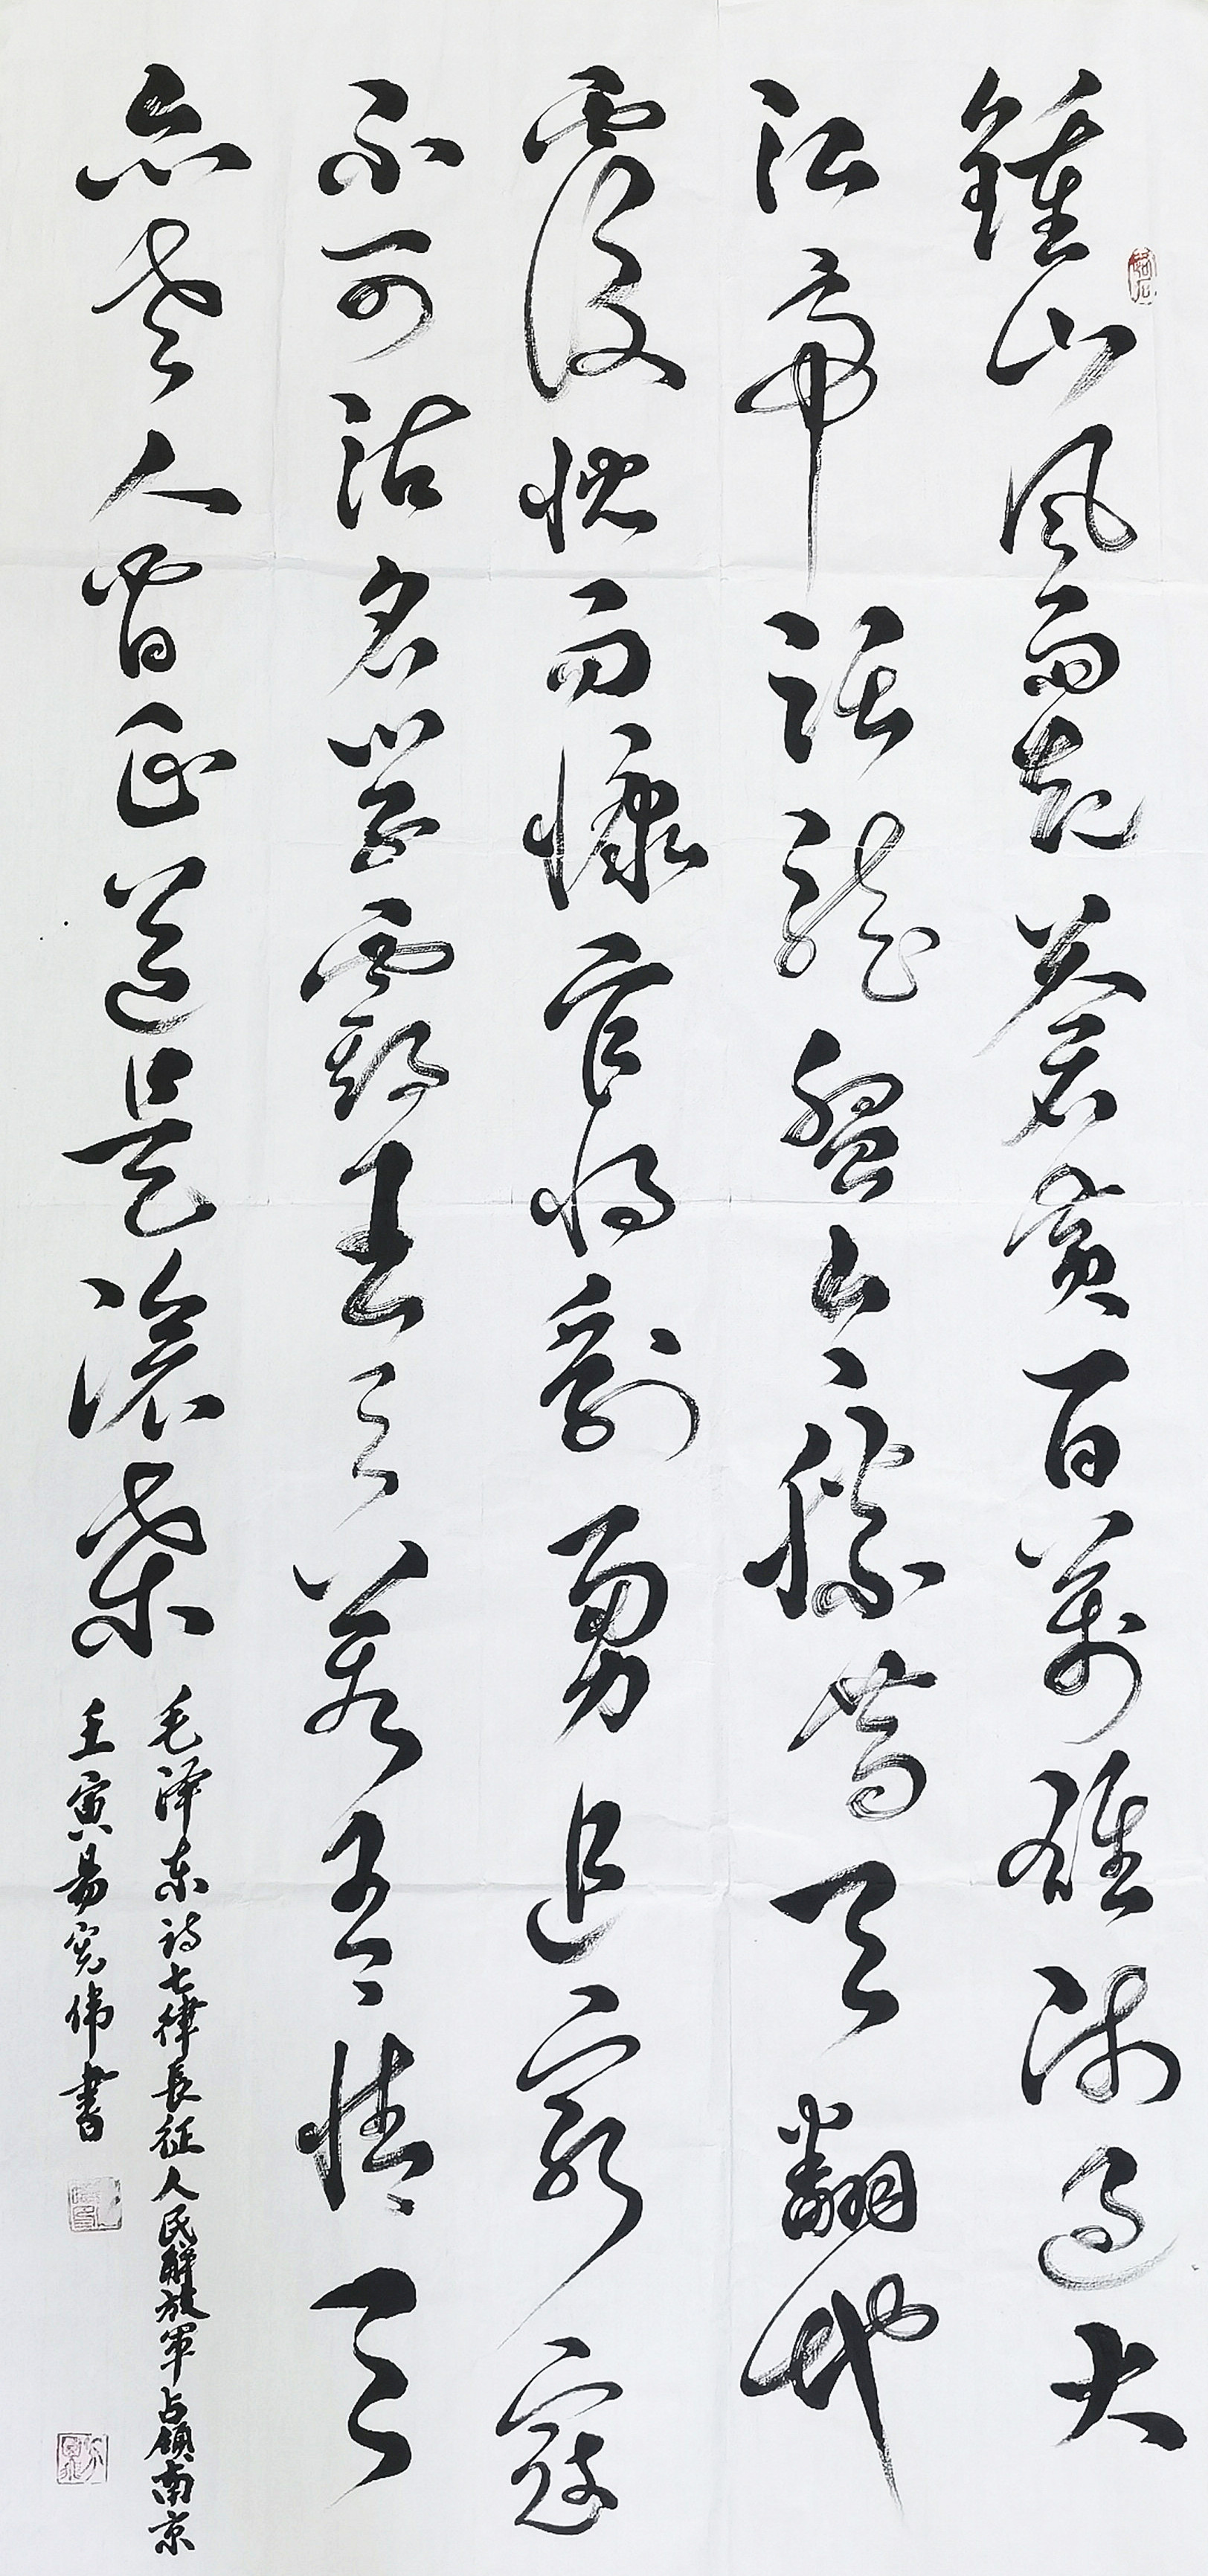 鍾山风雨起蒼黄百萬雄师过大
江虎踞龍盘今勝昔天翻地
覆慨而慷宜将剩勇追窮寇
不可沽名学霸王天若有情天
亦老人间正道是滄桑
毛泽东诗七律長征人民解放軍占領南京
壬寅易宪伟書